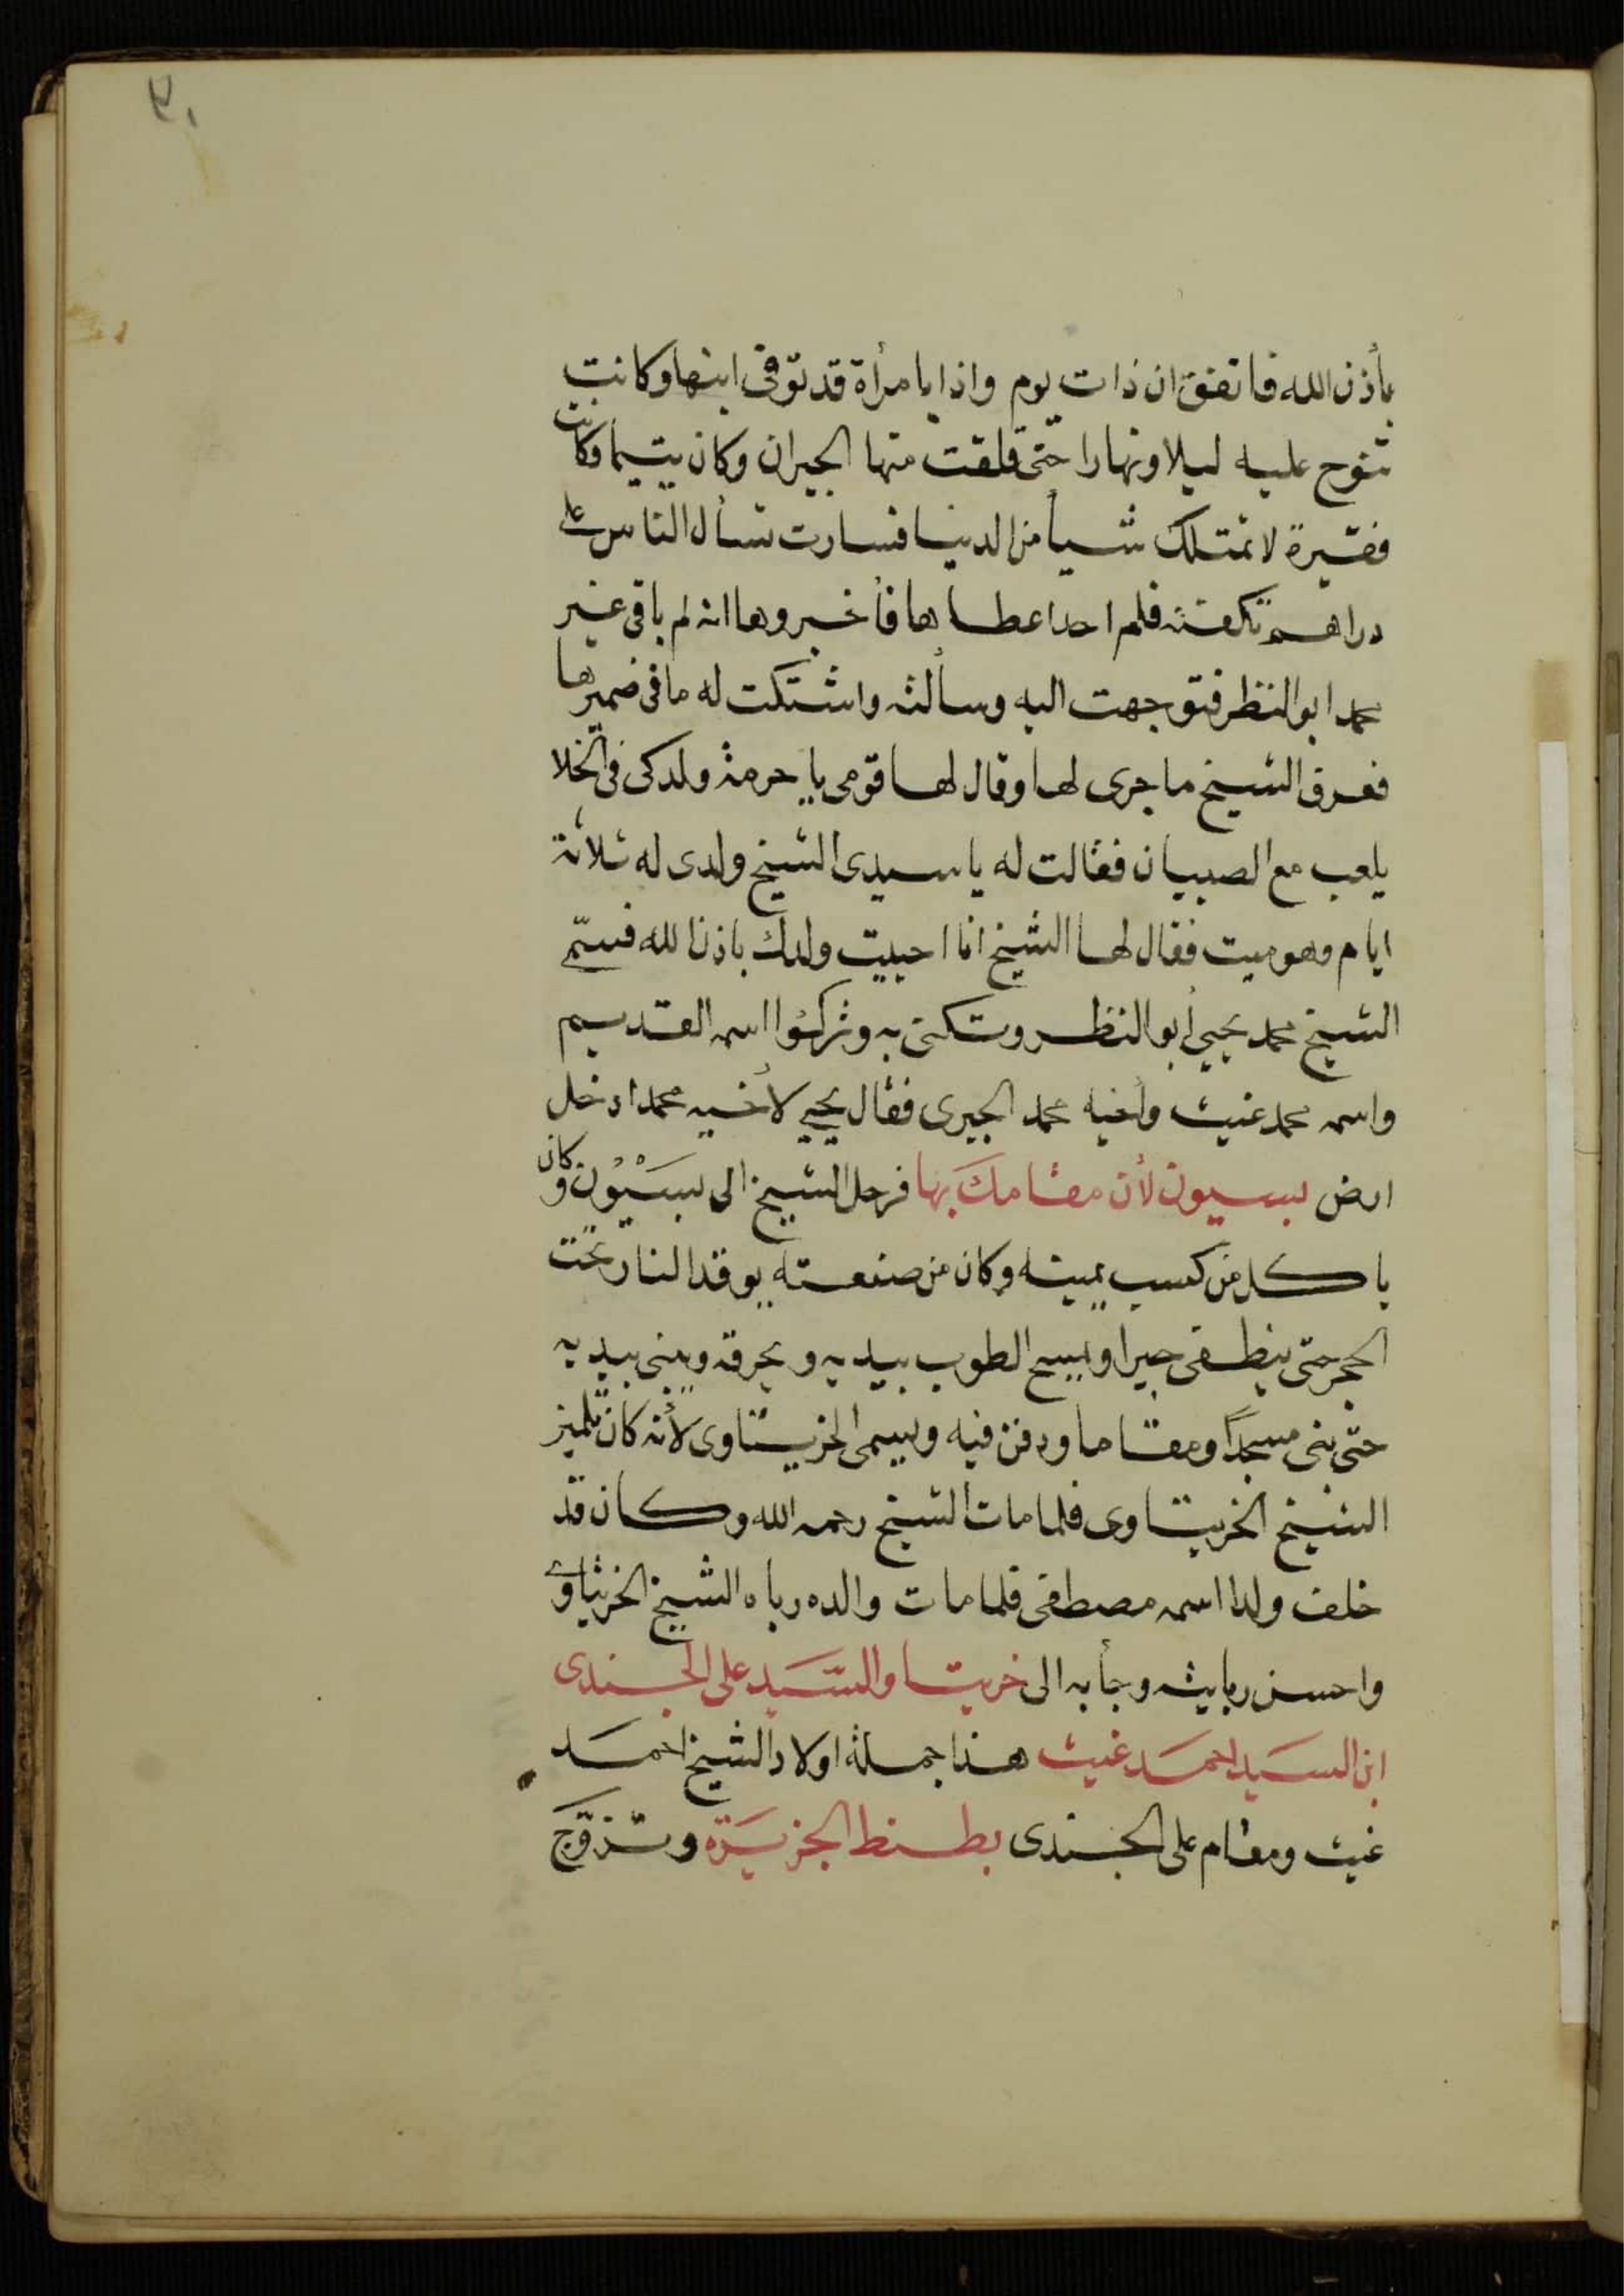 ٢٠
بأذن الله فاتفق ان ذات يوم واذا بامرأة قد توفى ابنها وكانت
تنوح عليه ليلا ونهارا حتى قلقت منها الجيران وكان يتيما وكانت
فقيرة لا تمتلك شيأ من الدنيا فسارت تسأل الناس على
دراهم تكفنه فلم احدا عطاها فأخبروها انه لم باقى غير
محمد ابو النظر فتوجهت اليه وسألته واشتكت له ما فى ضميرها
فعرف الشيخ ما جرى لها وقال لها قومى يا حرمة ولدكى فى الخلا
يلعب مع الصبيان فقالت له يا سيدى الشيخ ولدى له ثلاثة
ايام وهو ميت فقال لها الشيخ انا احييت ولدك باذن الله فسمى
الشيخ محمد يحيى أبو النظر وتكنى به وتركوا اسمه القديم
واسمه محمد غيث وأخيه محمد الجيرى فقال يحيى لأخيه محمد ادخل
ارض بسيون لأن مقامك بها فرحل الشيخ الى بسيون وكان
ياكل من كسب يمينه وكان من صنعته يوقد النار تحت
الحجر حتى ينطفى جيرا ويسيح الطوب بيديه ويحرقه ويبنى بيديه
حتى بنى مسجدا ومقاما ودفن فيه ويسمى الخريتاوى لأنه كان تلميذ
الشيخ الخريتاوى فلما مات الشيخ رحمه الله وكان قد
خلف ولدا اسمه مصطفى فلما مات والده رباه الشيخ الخريتاوى
واحسن ربايته وجأ به الى خربتا والسيد على الجندى
ابن السيد احمد غيث هذا جملة اولاد الشيخ احمد
غيث ومقام على الجندى بطنط الجزيرة وتزوج